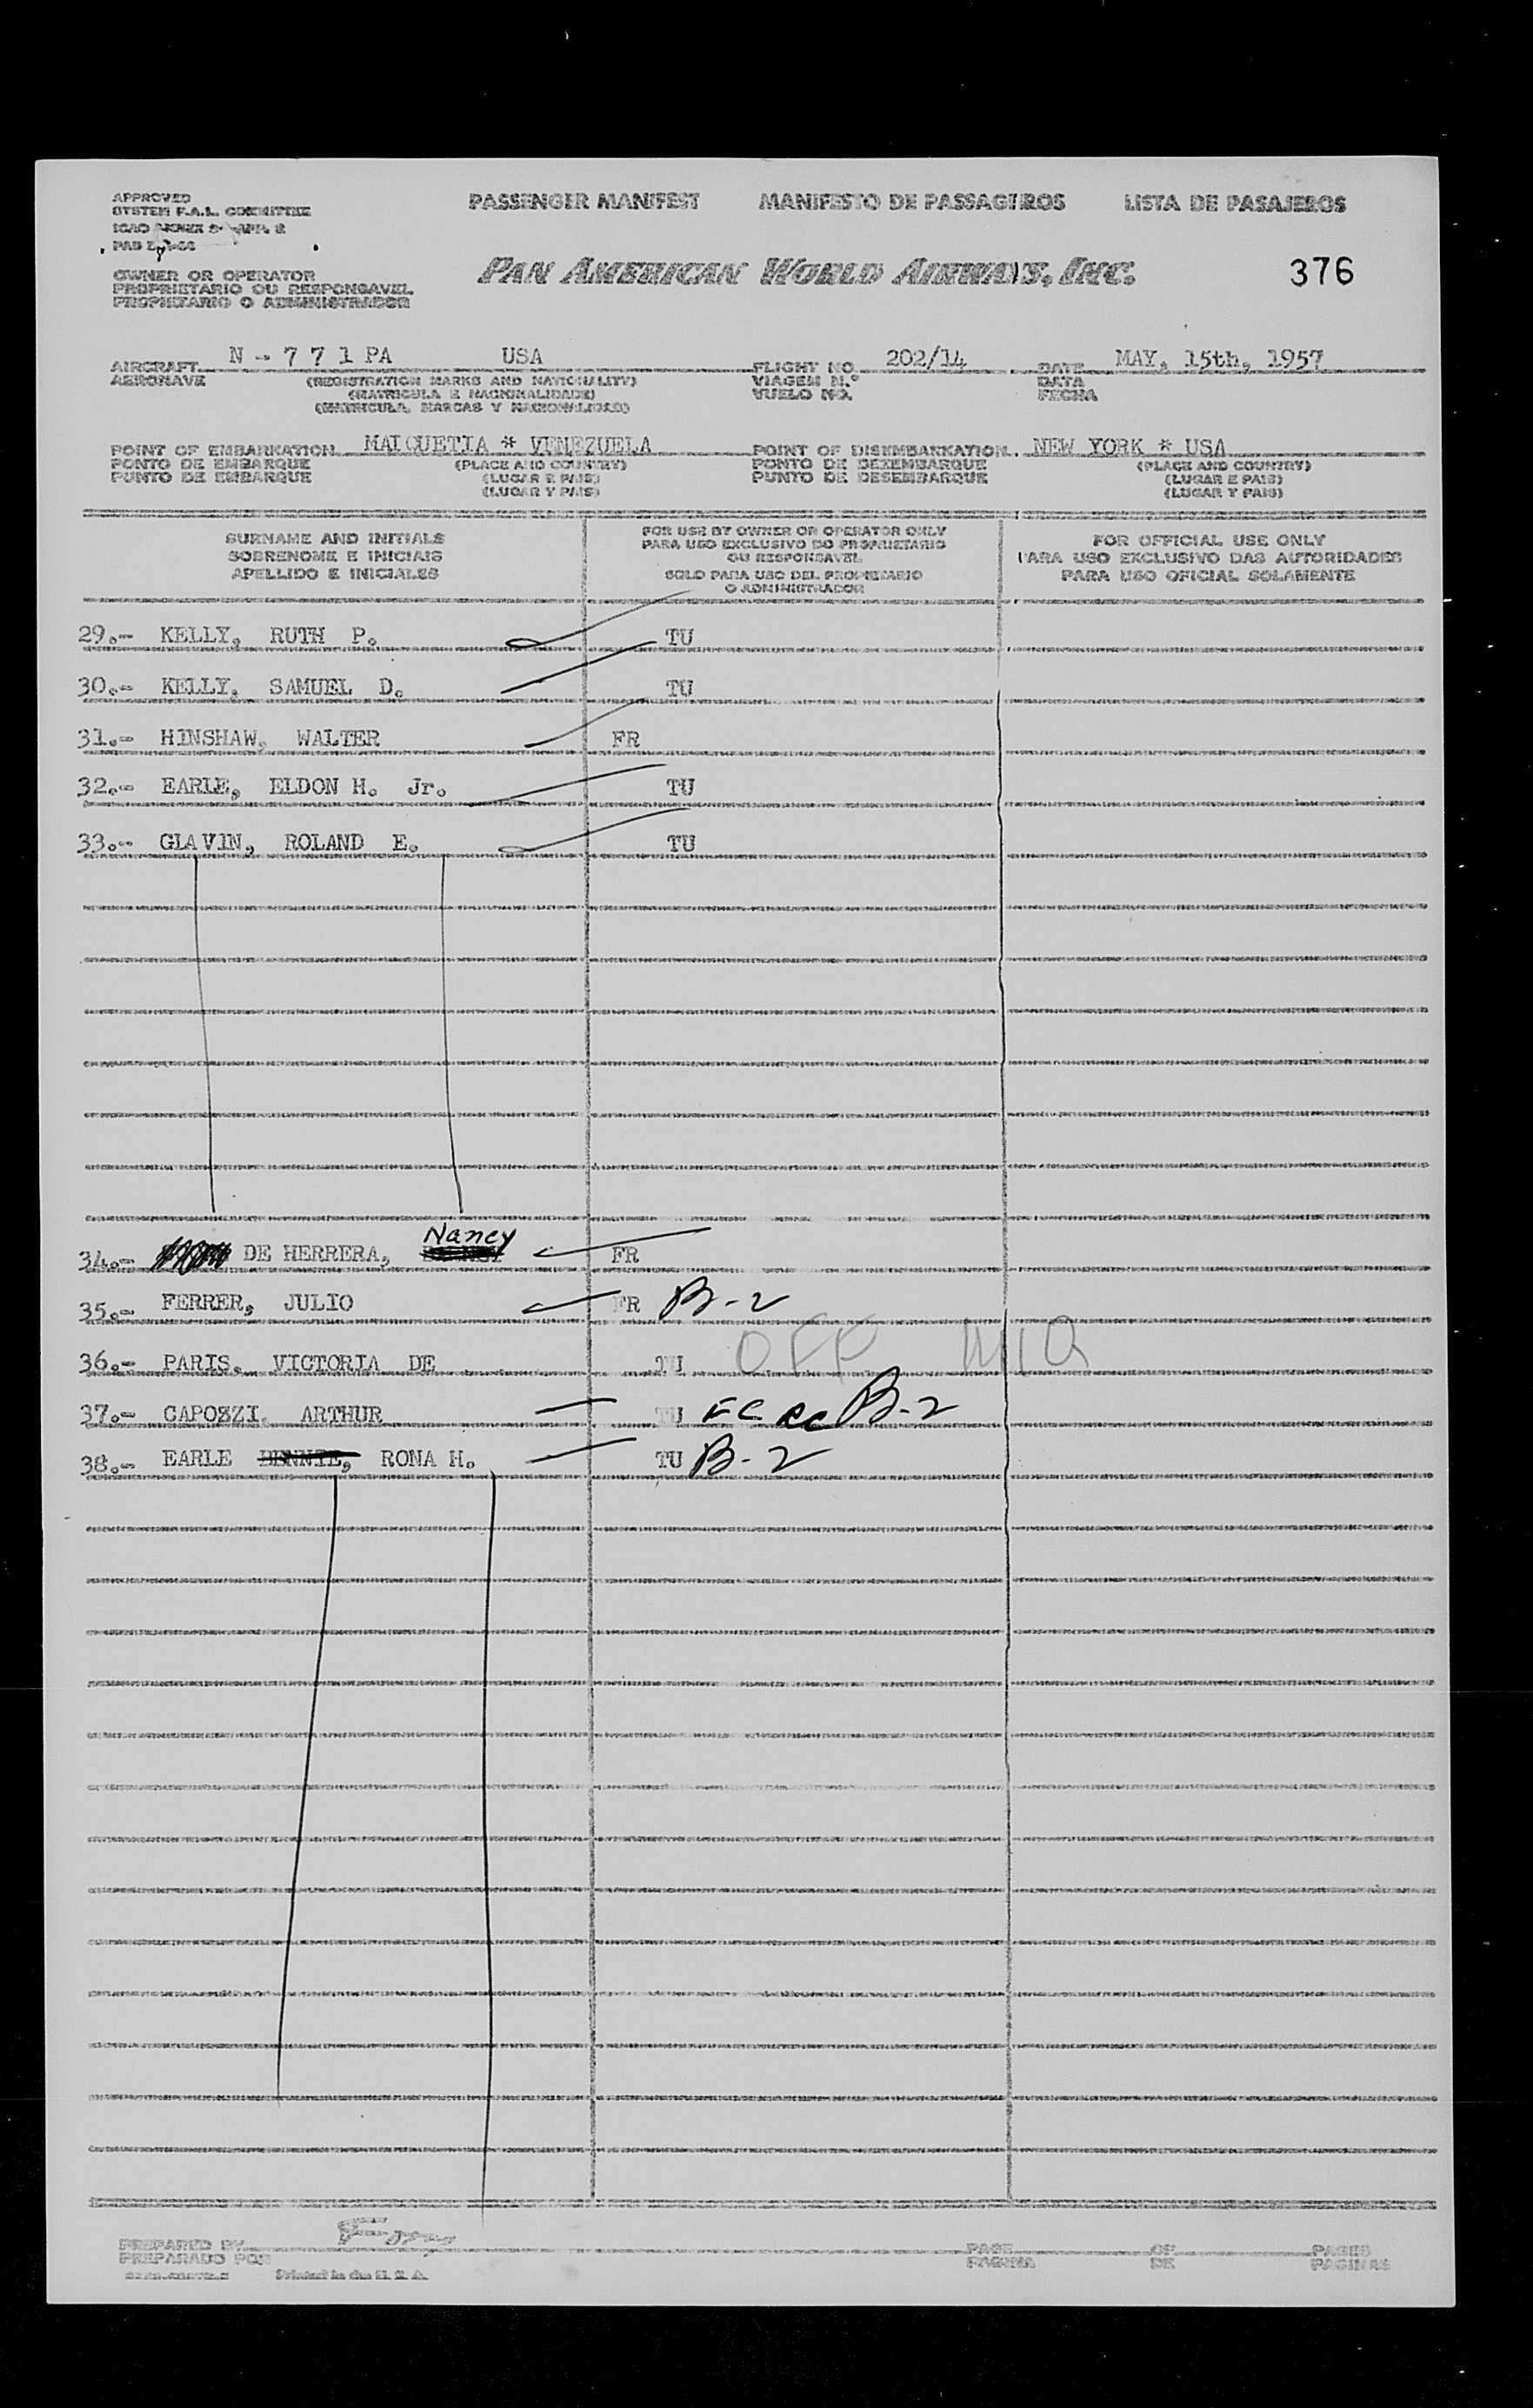 APPROVED
SYSTEM F.A.L. COMMITTEE
PASSENGER MANIFEST MANIFESTO DE PASSAGEIROS LISTA DE PASAJEROS
OWNER OR OPERATOR
PROPRIETARIO OU RESPONSAVEL
PROPIETARIO O ADMINISTRADOR
PAN AMERICAN WORLD AIRWAYS, INC. 376
AIRCRAFT N - 7 7 1 PA USA FLIGHT NO. 202/14 DATE MAY, 15th, 1957
AERONAVE (REGISTRATION MARKS AND NATIONALITY) VIAGEM N.º DATA
(MATRICULA E NACIONALIDADE) VUELO NO. FECHA
(MATRICULA, MARCAS Y NACIONALIDAD)
POINT OF EMBARKATION MAIQUETIA * VENEZUELA POINT OF DISEMBARKATION NEW YORK * USA
PONTO DE EMBARQUE (PLACE AND COUNTRY) PONTO DE DEZEMBARQUE (PLACE AND COUNTRY)
PUNTO DE EMBARQUE (LUGAR E PAIS) PUNTO DE DESEMBARQUE (LUGAR E PAIS)
(LUGAR Y PAIS) (LUGAR Y PAIS)
SURNAME AND INITIALS
SOBRENOME E INICIAIS
APELLIDO E INICIALES
FOR USE BY OWNER OR OPERATOR ONLY
PARA USO EXCLUSIVO DO PROPRIETARIO
OU RESPONSAVEL
SOLO PARA USO DEL PROPIETARIO
O ADMINISTRADOR
FOR OFFICIAL USE ONLY
PARA USO EXCLUSIVO DAS AUTORIDADES
PARA USO OFICIAL SOLAMENTE
29.- KELLY, RUTH P. TU
30.- KELLY, SAMUEL D. TU
31.- HINSHAW, WALTER FR
32.- EARLE, ELDON H. Jr. TU
33.- GLAVIN, ROLAND E. TU
Nancy
34.- DE HERRERA, FR
35.- FERRER, JULIO FR B-2
36.- PARIS, VICTORIA DE OFF MIQ
37.- CAPOZZI, ARTHUR TU B-2
38.- EARLE BENNIE, RONA H. TU B-2
PREPARED BY PAGE OF PAGES
PREPARADO POR PAGINA DE PAGINAS
Printed in the U. S. A.